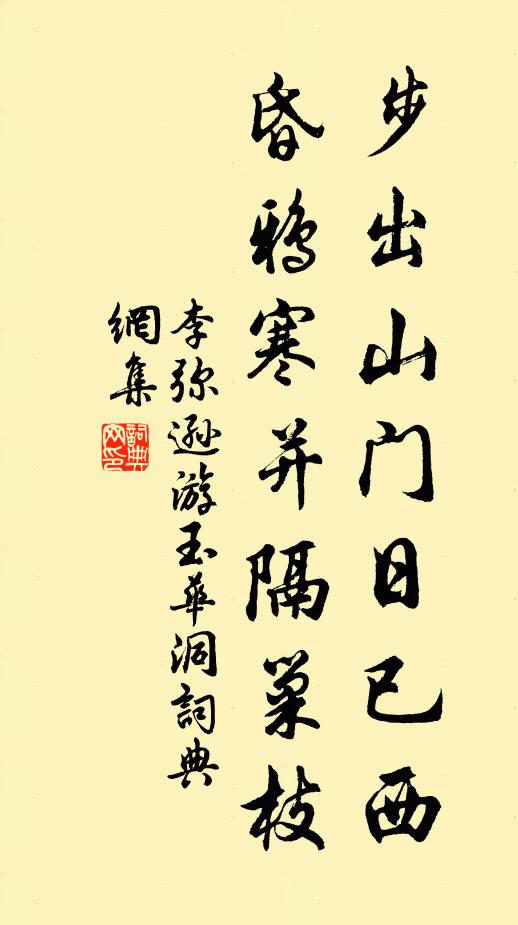 步出山门日已西
昏鸦寒并隔巢枝
李弥逊游玉华洞詞典
網集
詞典网印